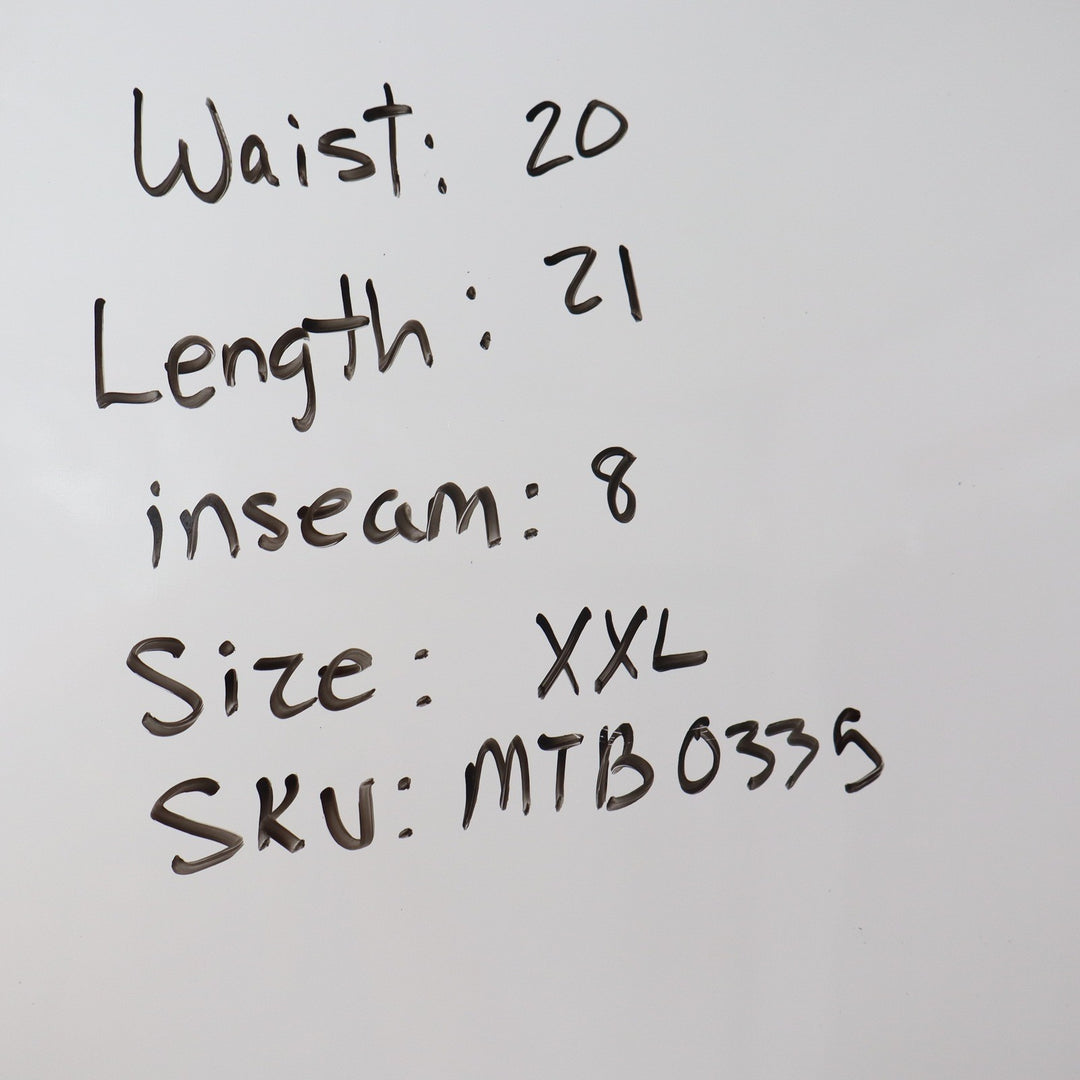 Waist: 20
Length: 21
inseam: 8
Size: XXL
SKU: MTB0335